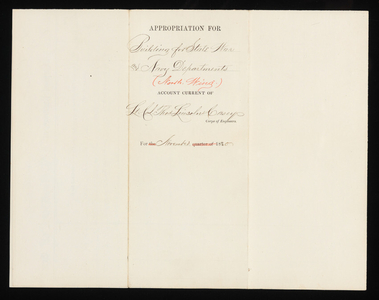 APPROPRIATION FOR
Building for State War
and Navy Departments
(North Wing)
ACCOUNT CURRENT OF
Lt. Col. Thos. Lincoln Casey
Corps of Engineers
For the November quarter of